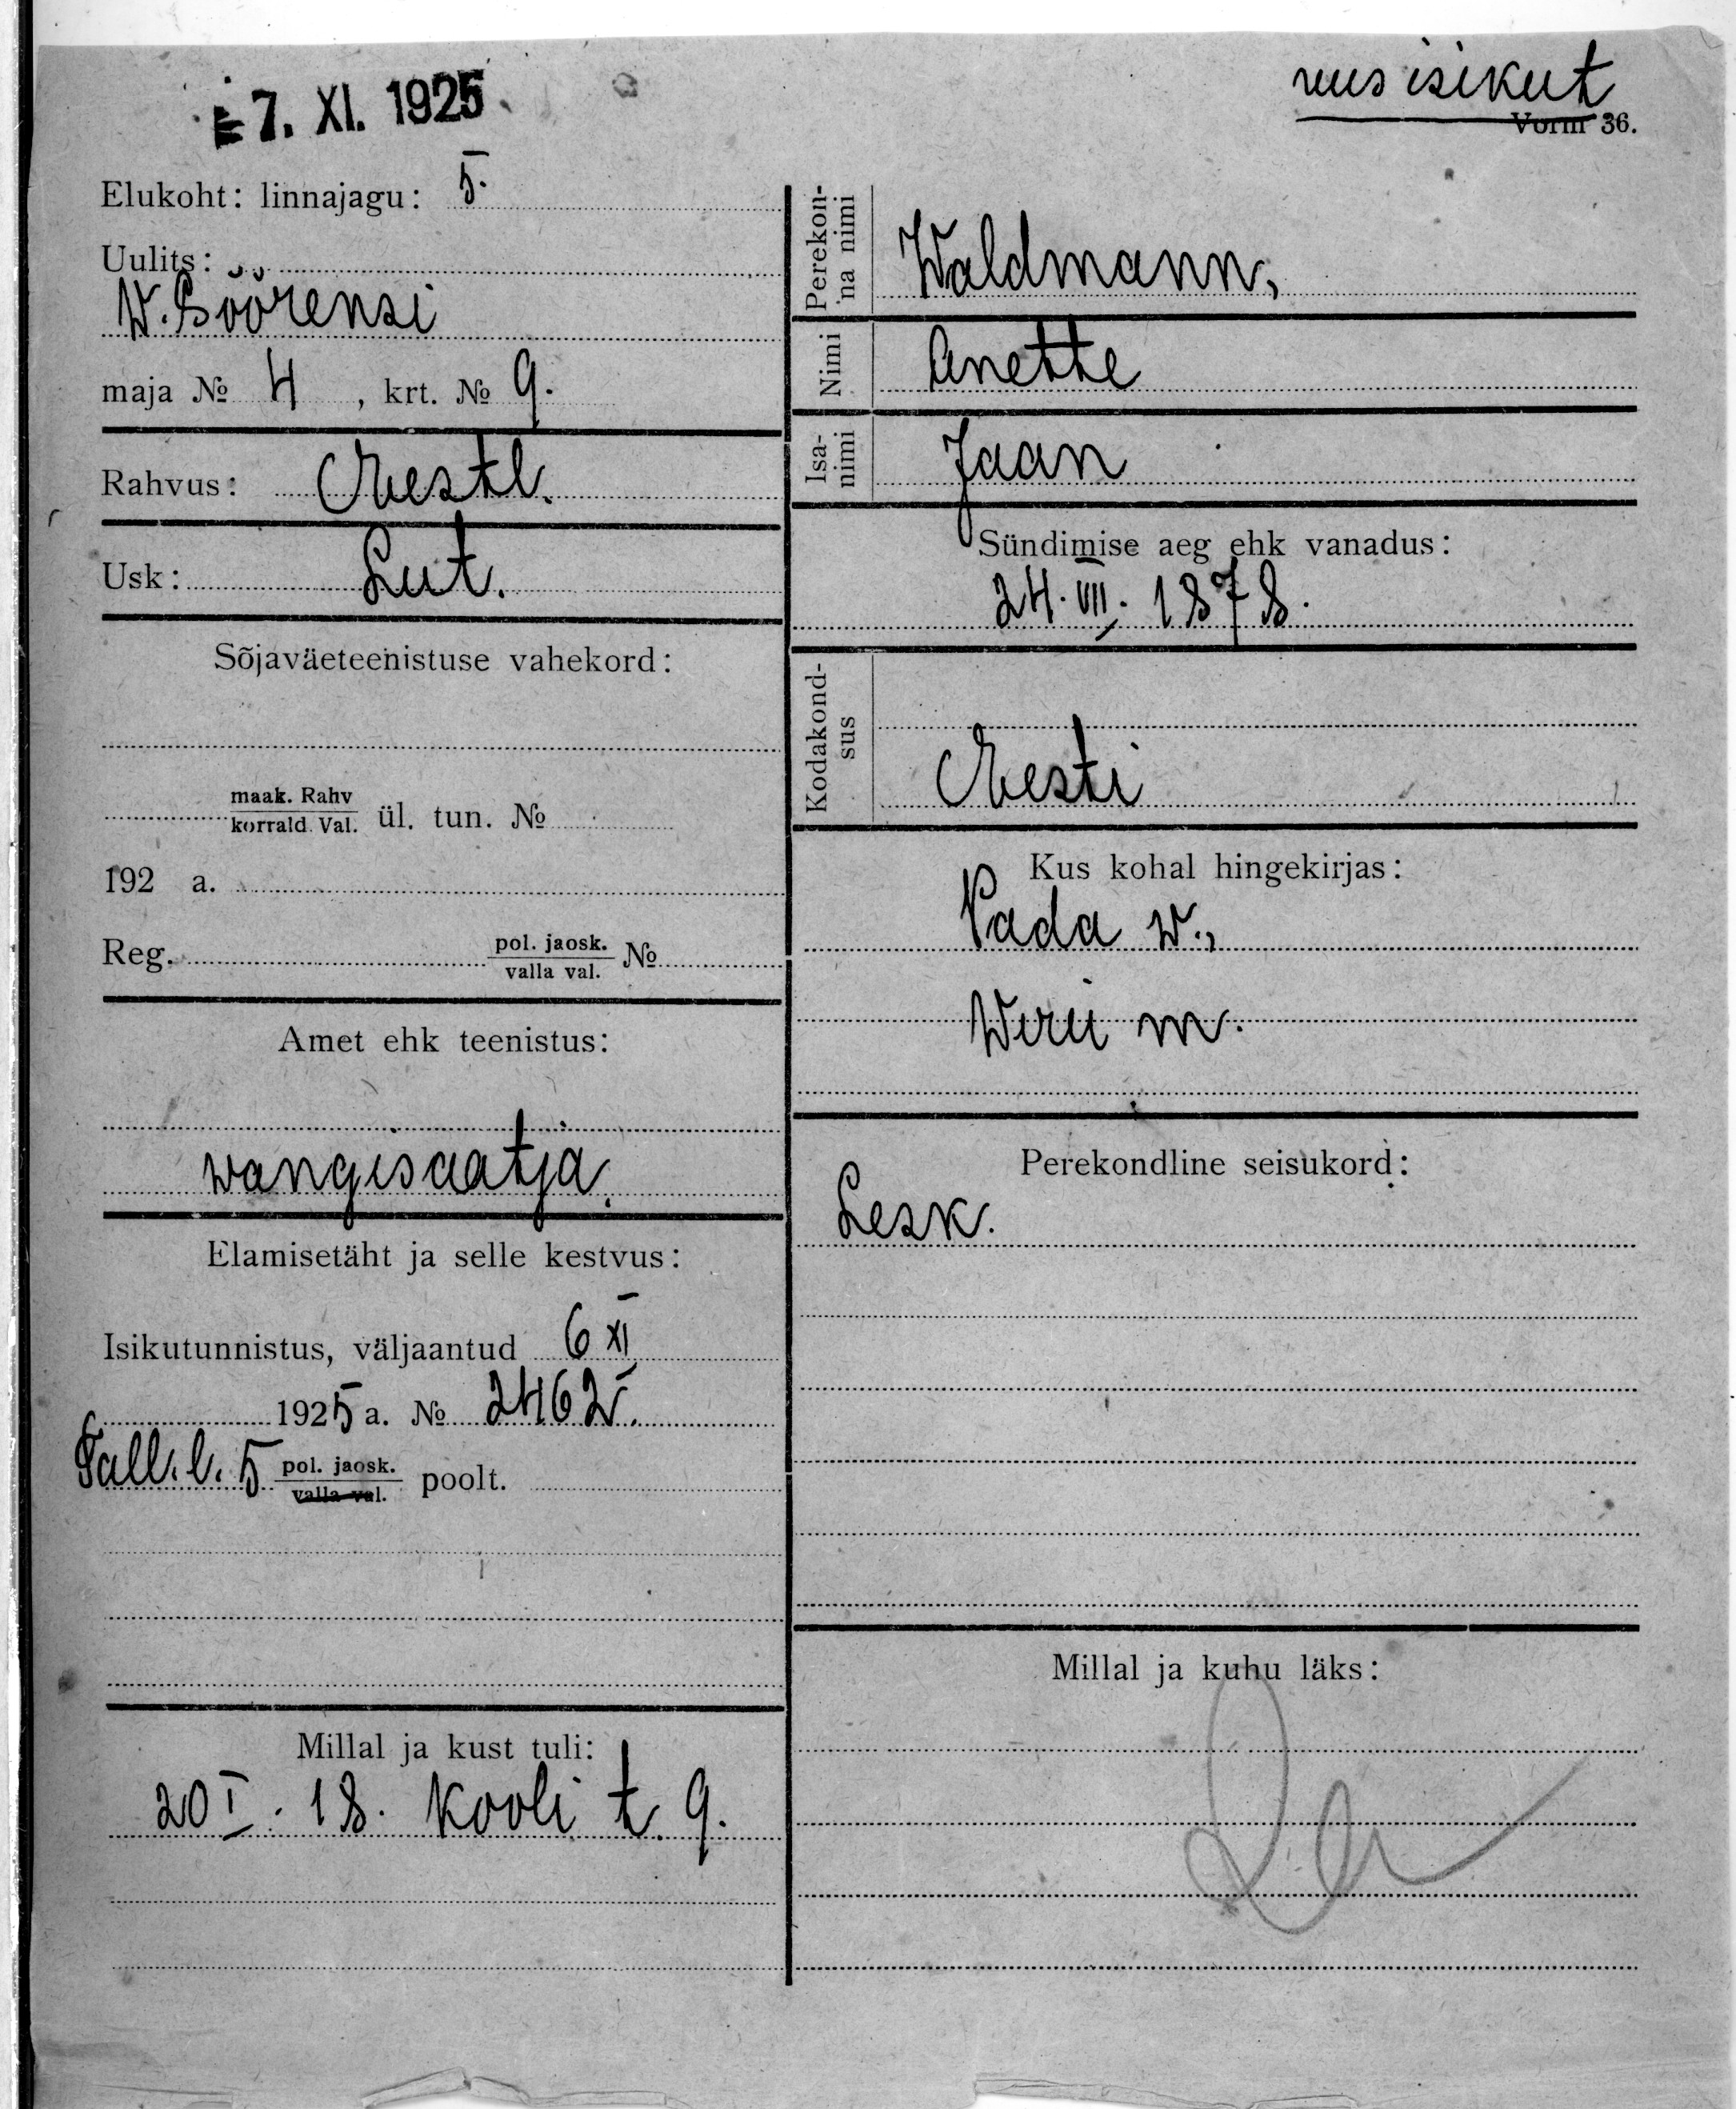 7. XI. 1925
uus isikut
Vorm 36.
Elukoht: linnajagu: 5.
Uulits:
W. Söörensi
maja № 4, krt. № 9.
Rahvus: Eestl.
Usk: Lut.
Sõjaväeteenistuse vahekord:
maak. Rahv
korrald. Val. ül. tun. №
192 a.
Reg. pol. jaosk.
valla val. №
Amet ehk teenistus:
wangisaatja.
Elamisetäht ja selle kestvus:
Isikutunnistus, väljaantud 6 XI
1925 a. № 2462.
Tall. l. 5 pol. jaosk.
valla val. poolt.
Millal ja kust tuli:
20 I. 18. Kooli t. 9.
Perekon-
na nimi
Waldmann,
Nimi
Anette
Isa-
nimi
Jaan
Sündimise aeg ehk vanadus:
24. VII. 1878.
Kodakond-
sus
Eesti
Kus kohal hingekirjas:
Pada w.,
Wiru m.
Perekondline seisukord:
Lesk.
Millal ja kuhu läks: